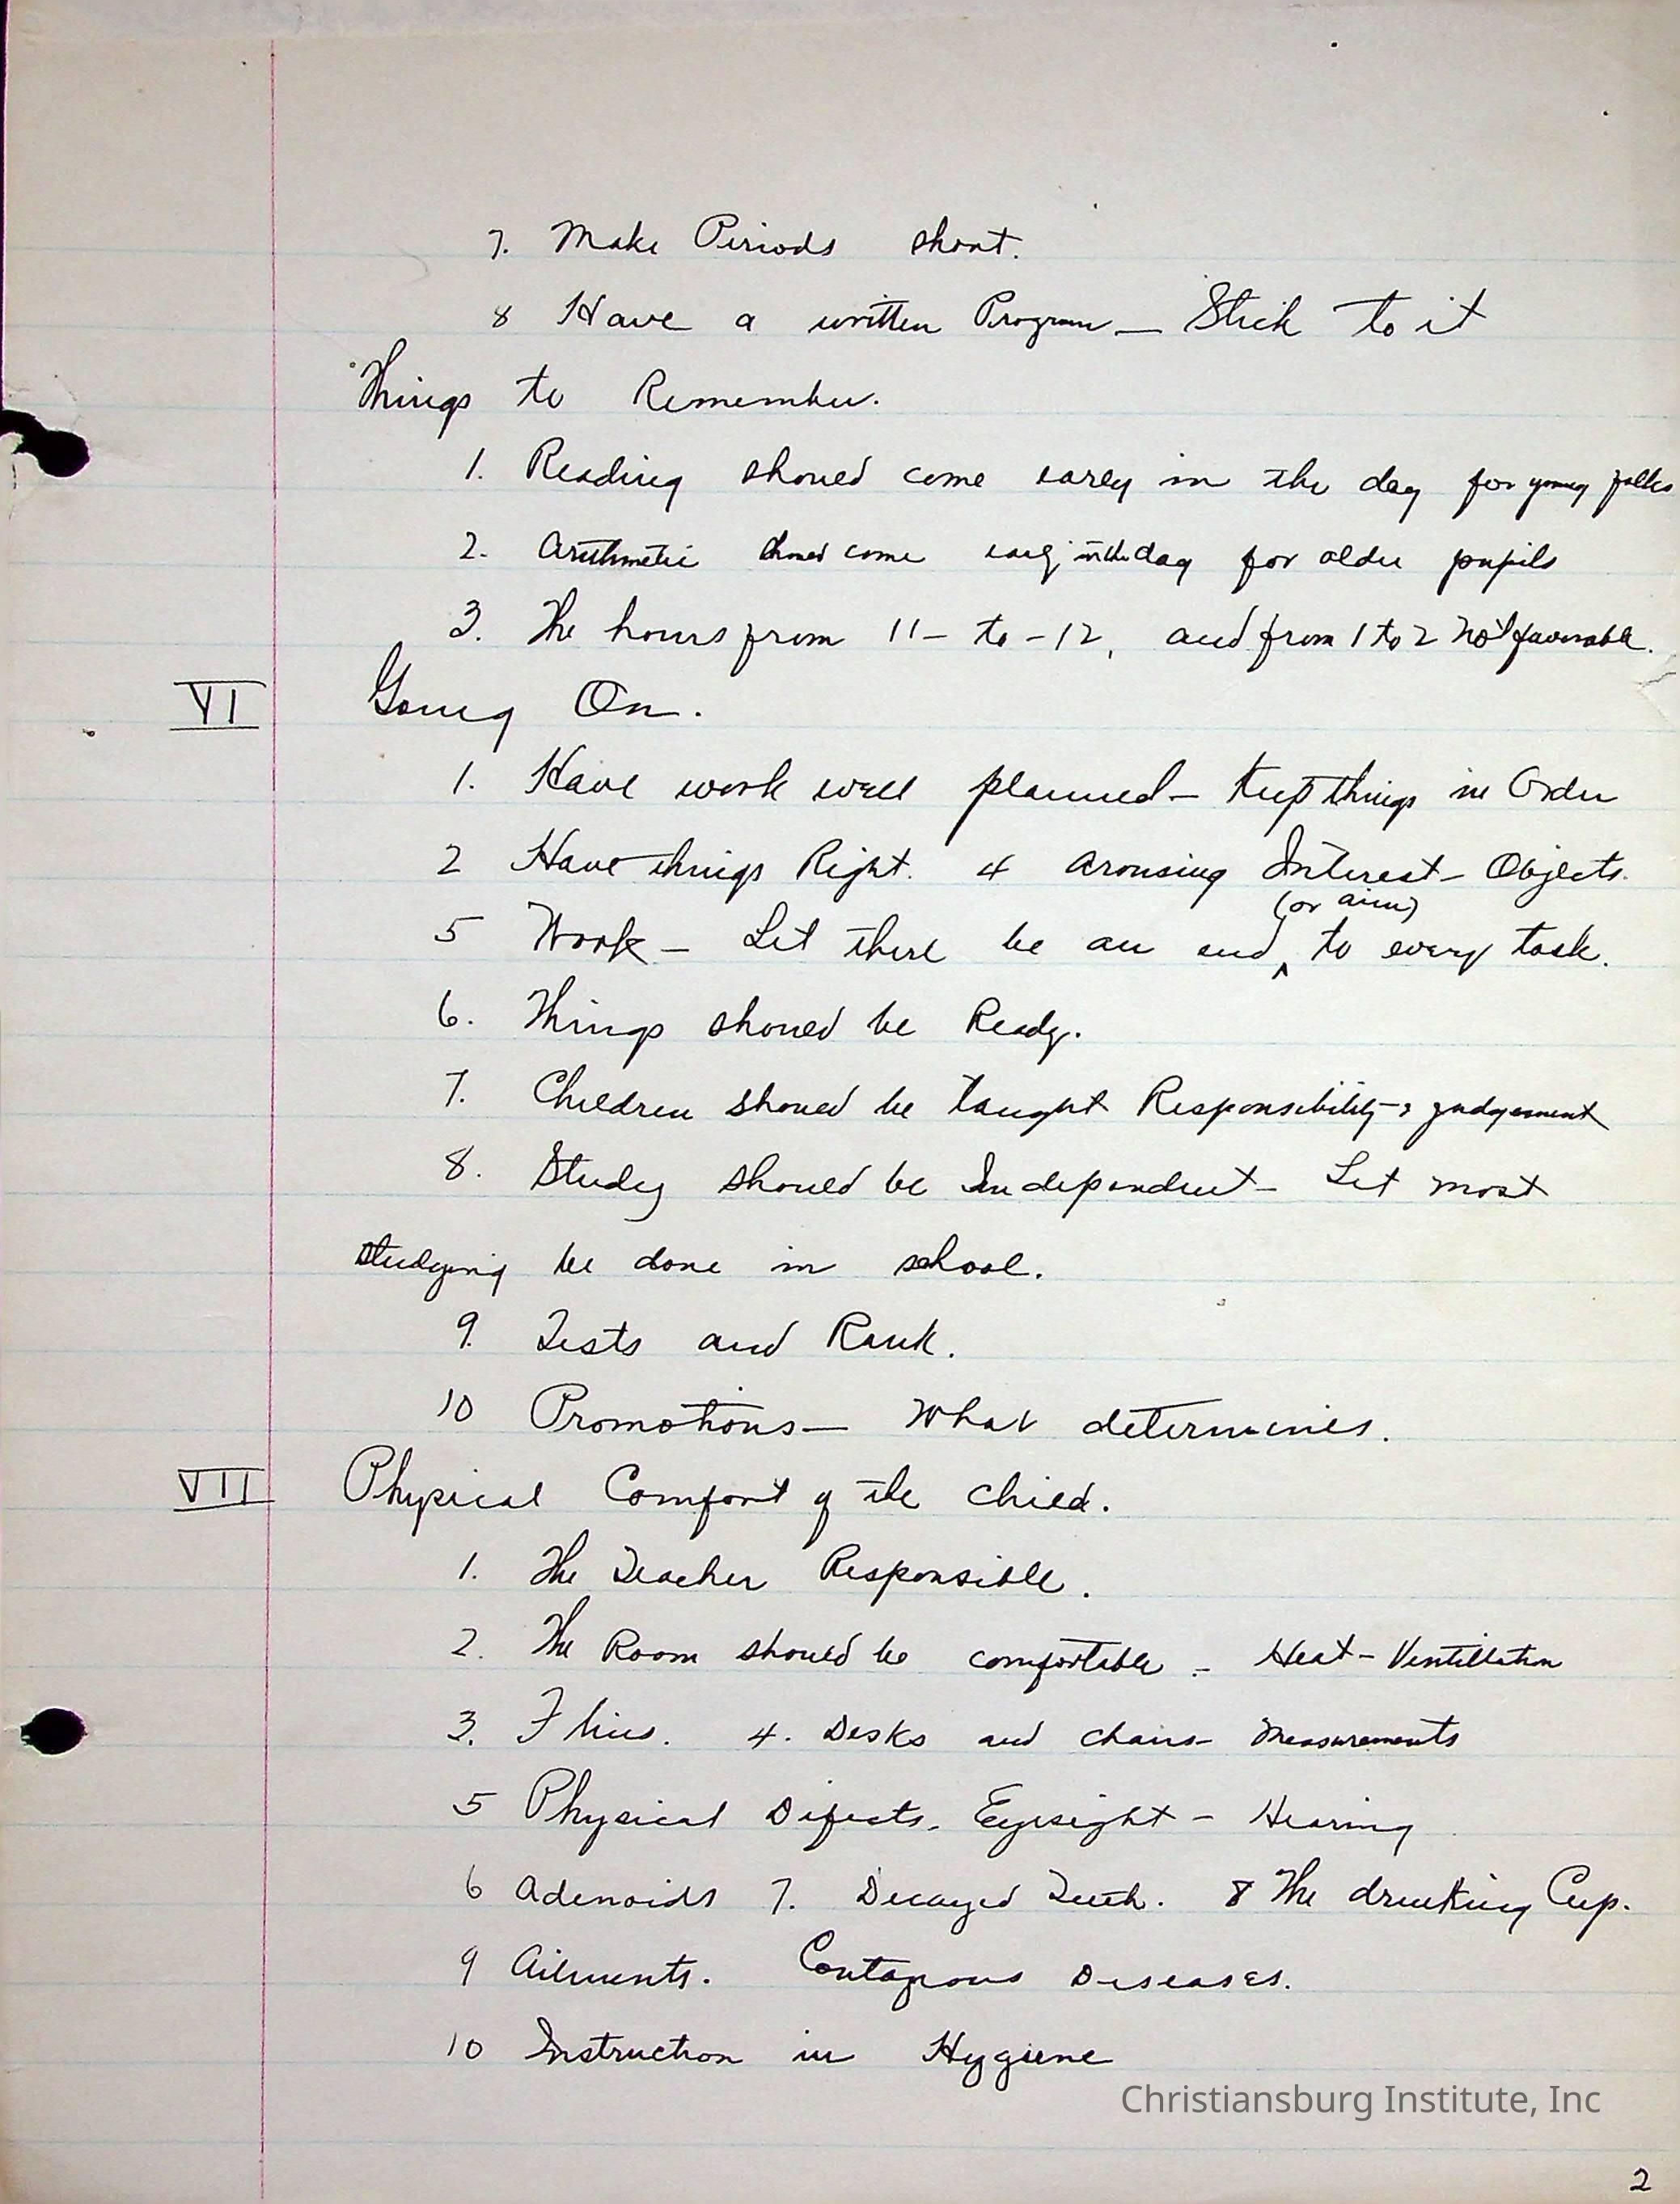 7. Make Periods short.
8 Have a written Program — Stick to it
Things to Remember.
1. Reading should come early in the day for young folks
2. Arithmetic should come early in the day for older pupils
3. The hours from 11 - to - 12, and from 1 to 2 not favorable.
VI Going On.
1. Have work well planned - Keep things in Order
2 Have things Right. 4 Arousing Interest - Objects.
(or aim)
5 Work - Let there be an end ^ to every task.
6. Things should be Ready.
7. Children should be taught Responsibility & judgement
8. Study should be Independent - Let most
studying be done in school.
9. Tests and Rank.
10 Promotions — What determines.
VII Physical Comfort of the child.
1. The Teacher Responsible.
2. The Room should be comfortable. - Heat - Ventillation
3. 4. Desks and chairs - Measurements
5 Physical Defects. Eyesight - Hearing
6 Adenoids 7. Decayed Teeth. 8 The drinking Cup.
9 Ailments. Contagious Diseases.
10 Instruction in Hygiene
Christiansburg Institute, Inc
2